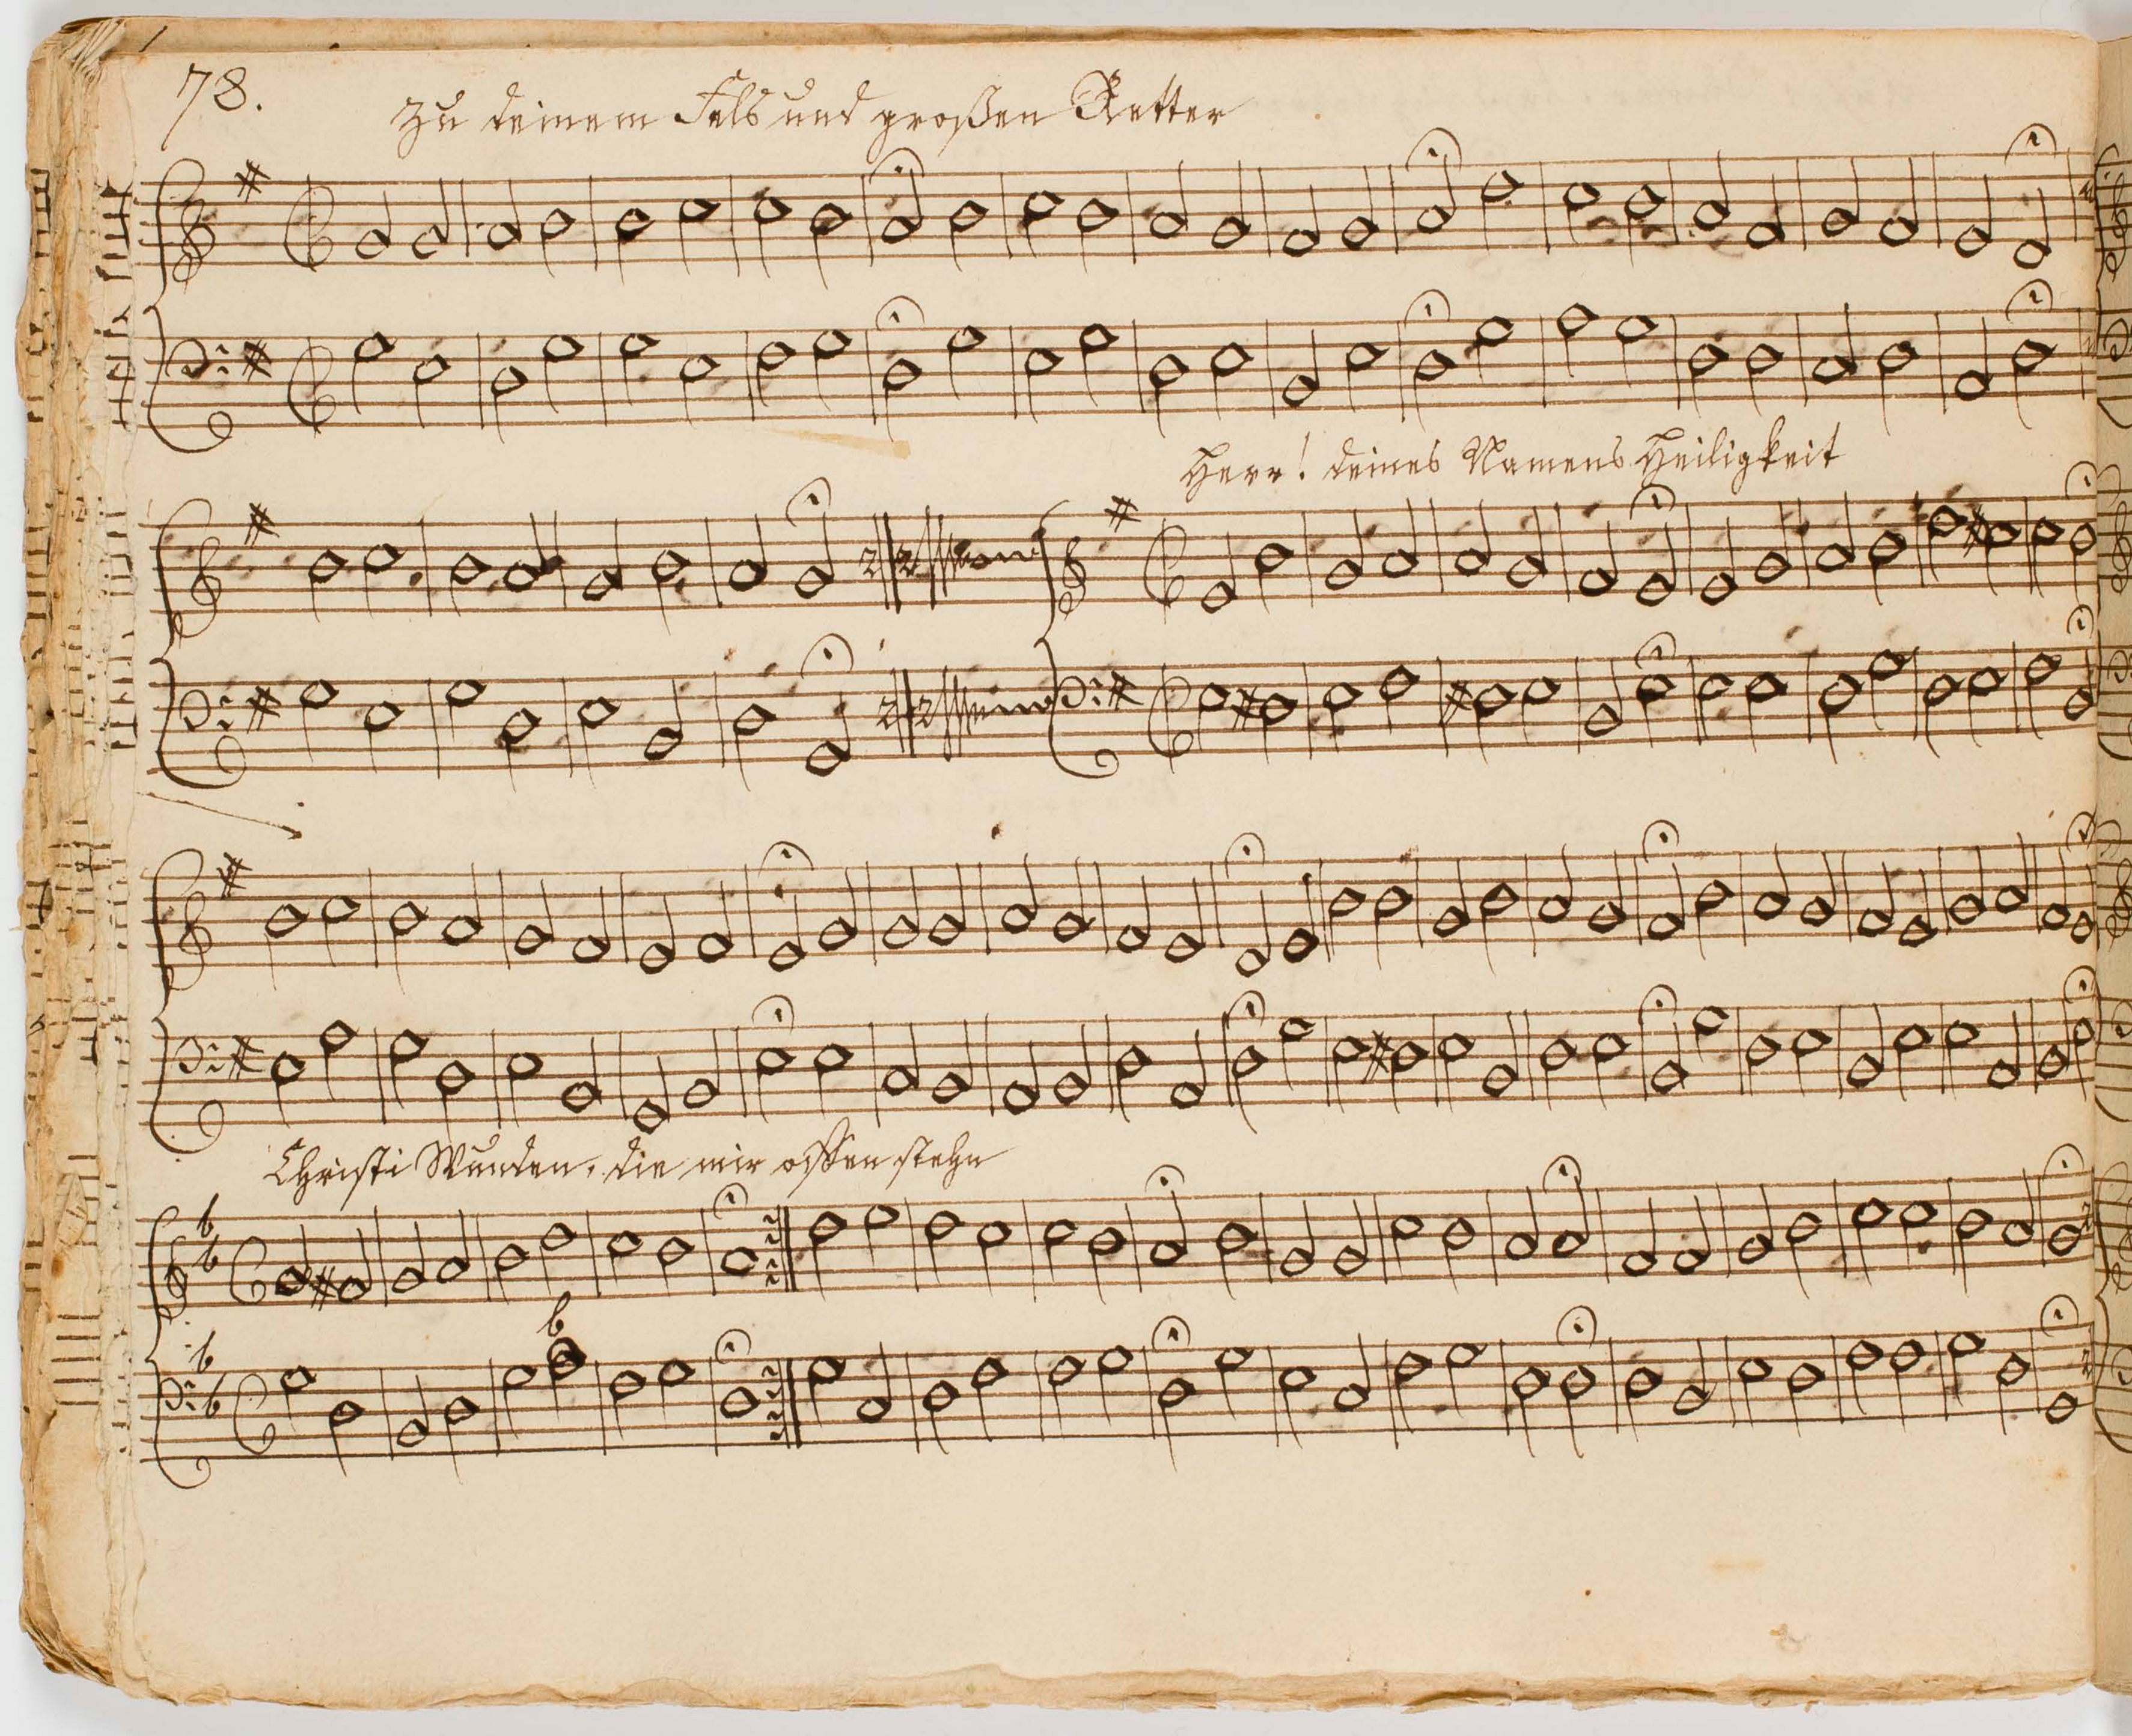 78.
Zu deinem Fels und großen Retter
Herr! deines Namens Heiligkeit
Christi Wunden, die mir offen stehn